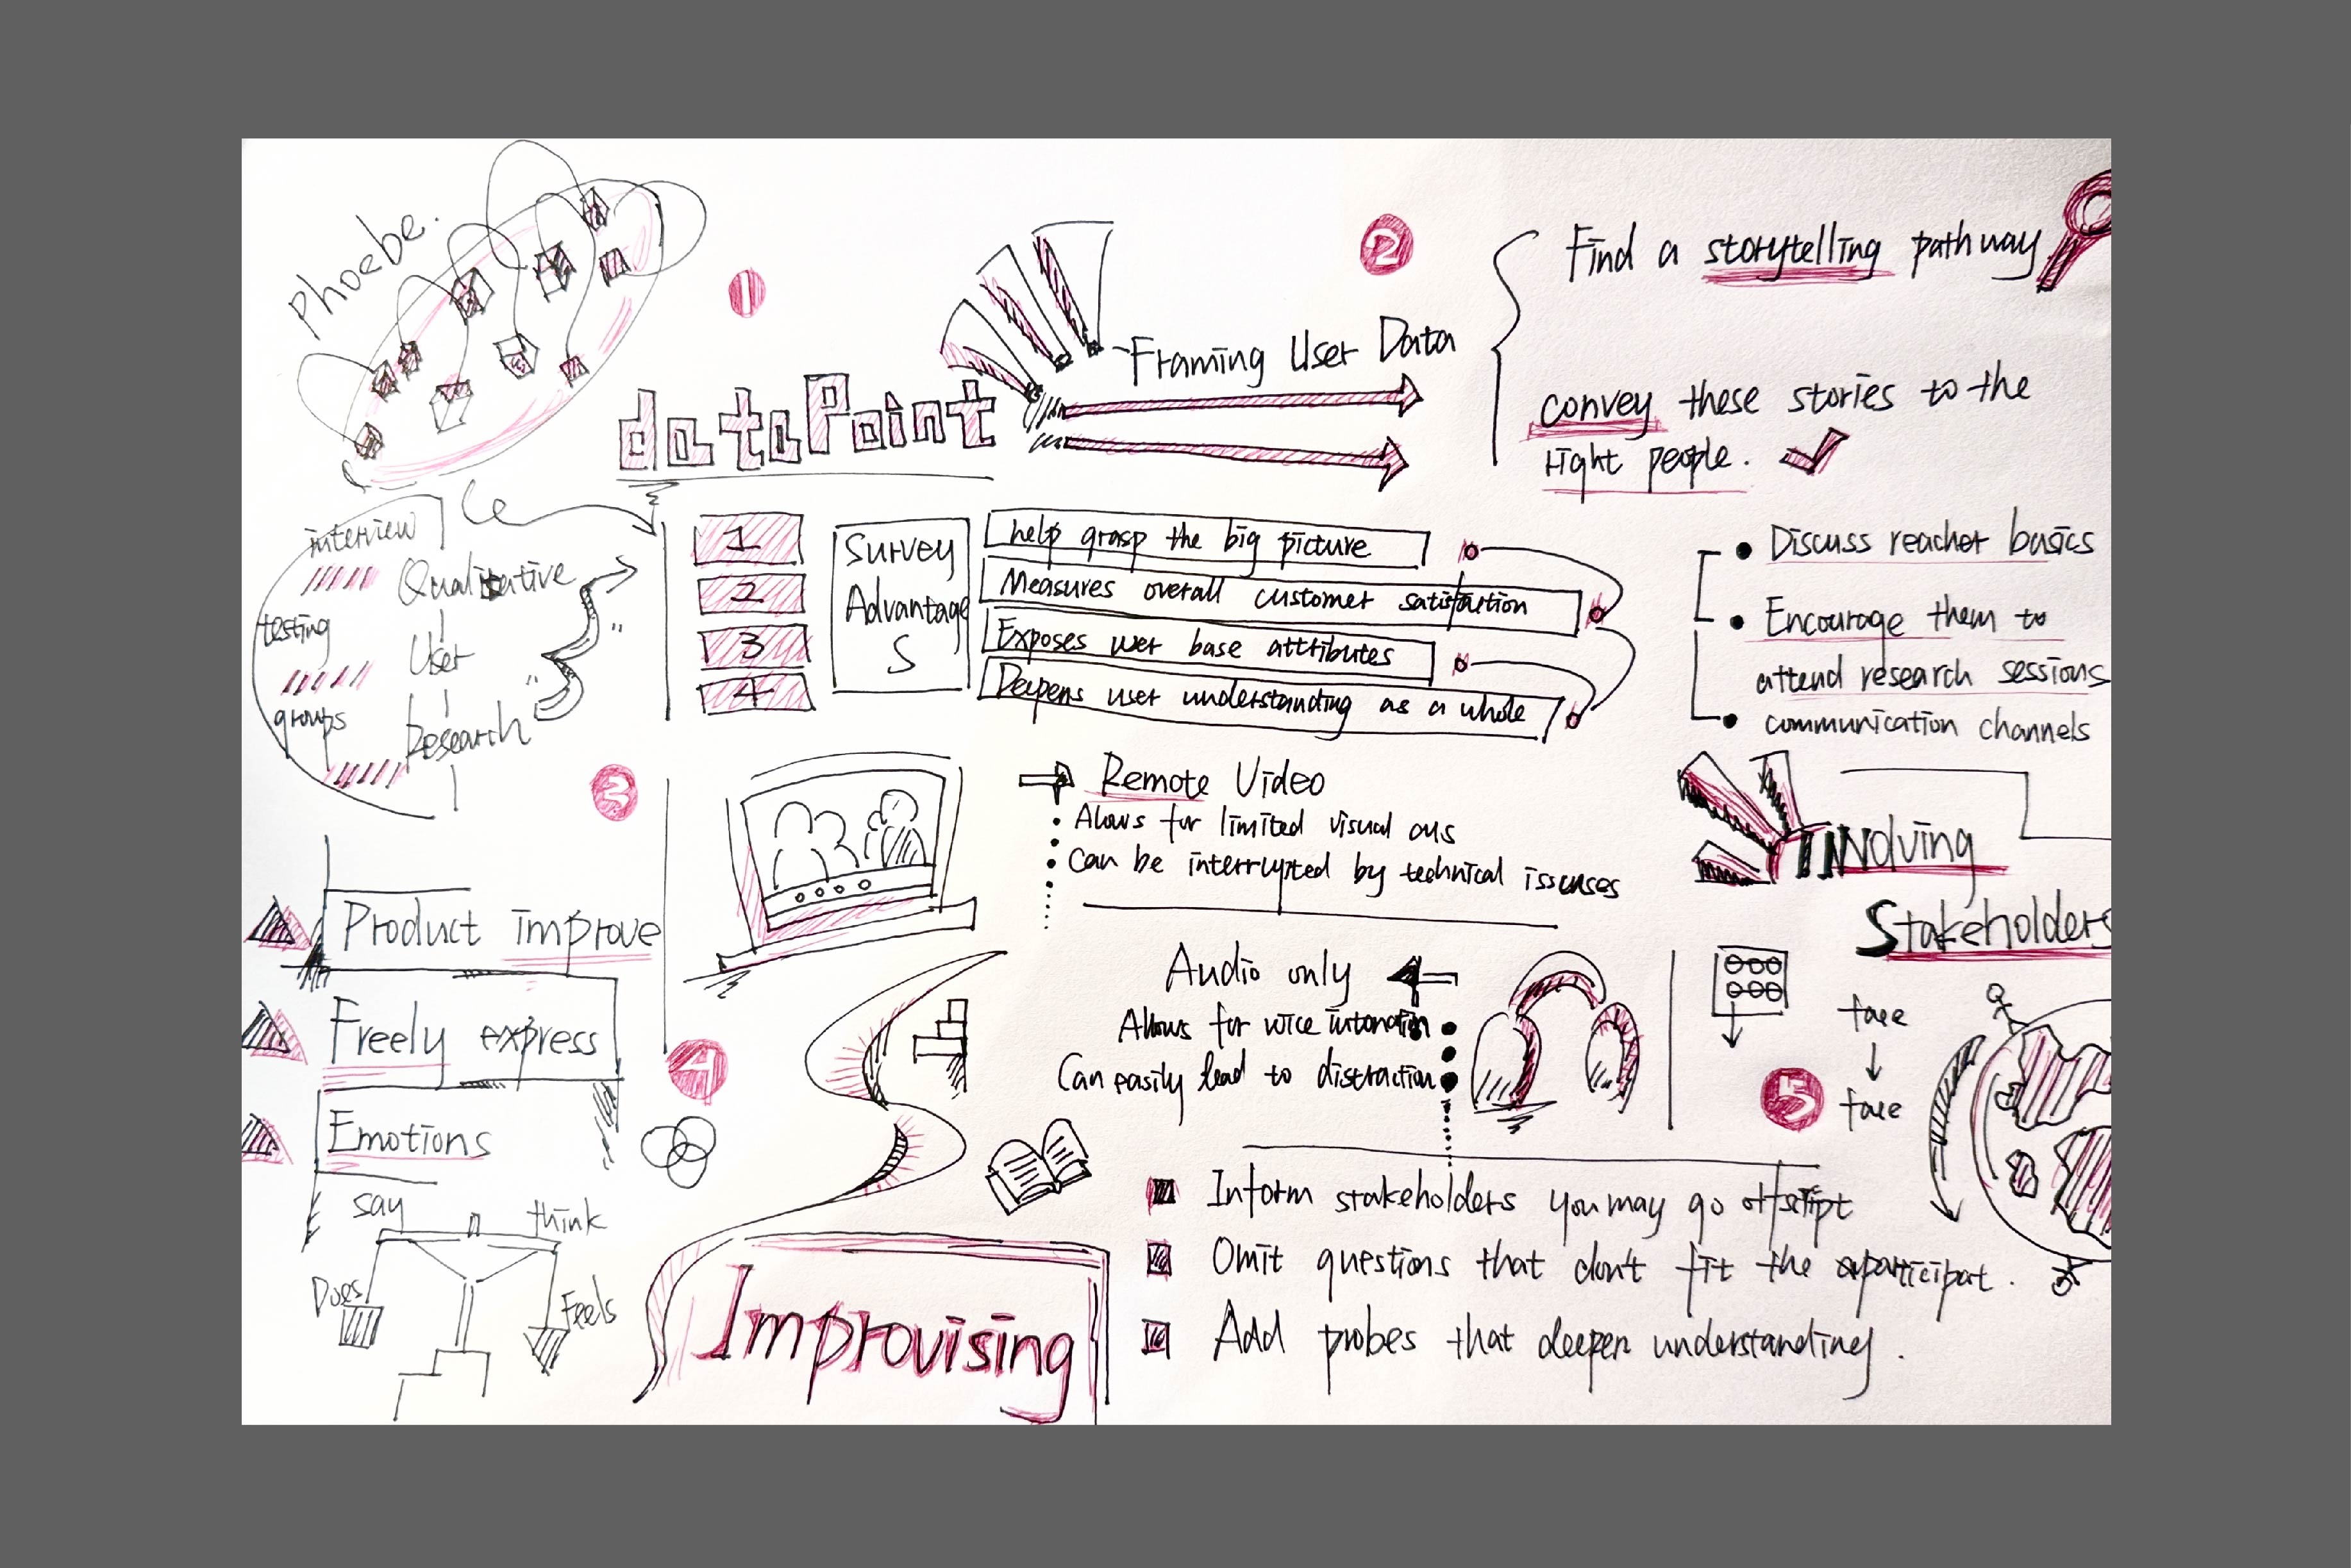 Phoebe.
1
dataPoint
Framing User Data
2
Find a storytelling pathway
convey these stories to the
right people.
interview
Qualitative
testing
User
groups
Research
1
2
3
4
Survey
Advantage
S
help grasp the big picture
Measures overall customer satisfaction
Exposes user base attributes
Deepens user understanding as a whole
Discuss reacher basics
Encourage them to
attend research sessions
communication channels
Involving
Stakeholders
3
Product improve
Freely express
Emotions
say
think
Does
Feels
Remote Video
Allows for limited visual
can be interrupted by technical
4
Audio only
Allows for voice
Can easily lead to distraction
face
face
5
Improvising
Inform stakeholders you may go offscript
Omit questions that don't fit the participat.
Add probes that deepen understanding.